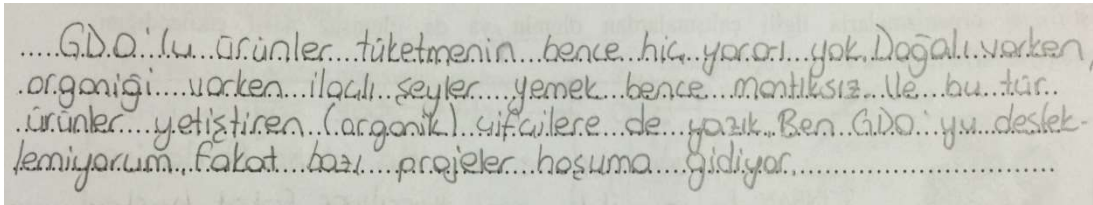 GDO'lu ürünler tüketmenin bence hiç yararı yok. Doğalı varken,
organiği varken ilaçlı şeyler yemek bence mantıksız. Ve bu tür
ürünler yetiştiren (organik) çifçilere de yazık. Ben GDO'yu destek-
lemiyorum, fakat bazı projeler hoşuma gidiyor.